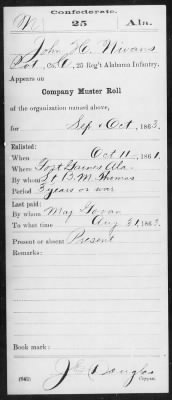 Confederate.
25 Ala.
John H.
Pvt., Co. C, 25 Reg't Alabama Infantry.
Appears on
Company Muster Roll
of the organization named above,
for Sep & Oct, 1863.
Enlisted:
When Oct 11, 1861.
Where Fort Gaines Ala.
By whom Lt B. M. Thomas
Period 3 years or war
Last paid:
By whom Maj Govan
To what time Aug 31, 1863.
Present or absent Present
Remarks:
Book mark:
Douglas
(642) Copyist.